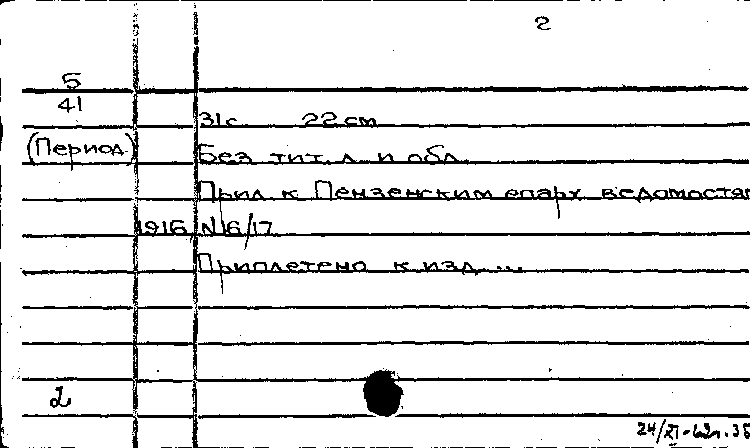 2
5
41
31с. 22 см
(Период.) Без тит. л. и обл.
Прил. к Пензенским епарх. ведомостям
1916, N 16/17
Приплетено к изд. ...
2
24/XI-62г.